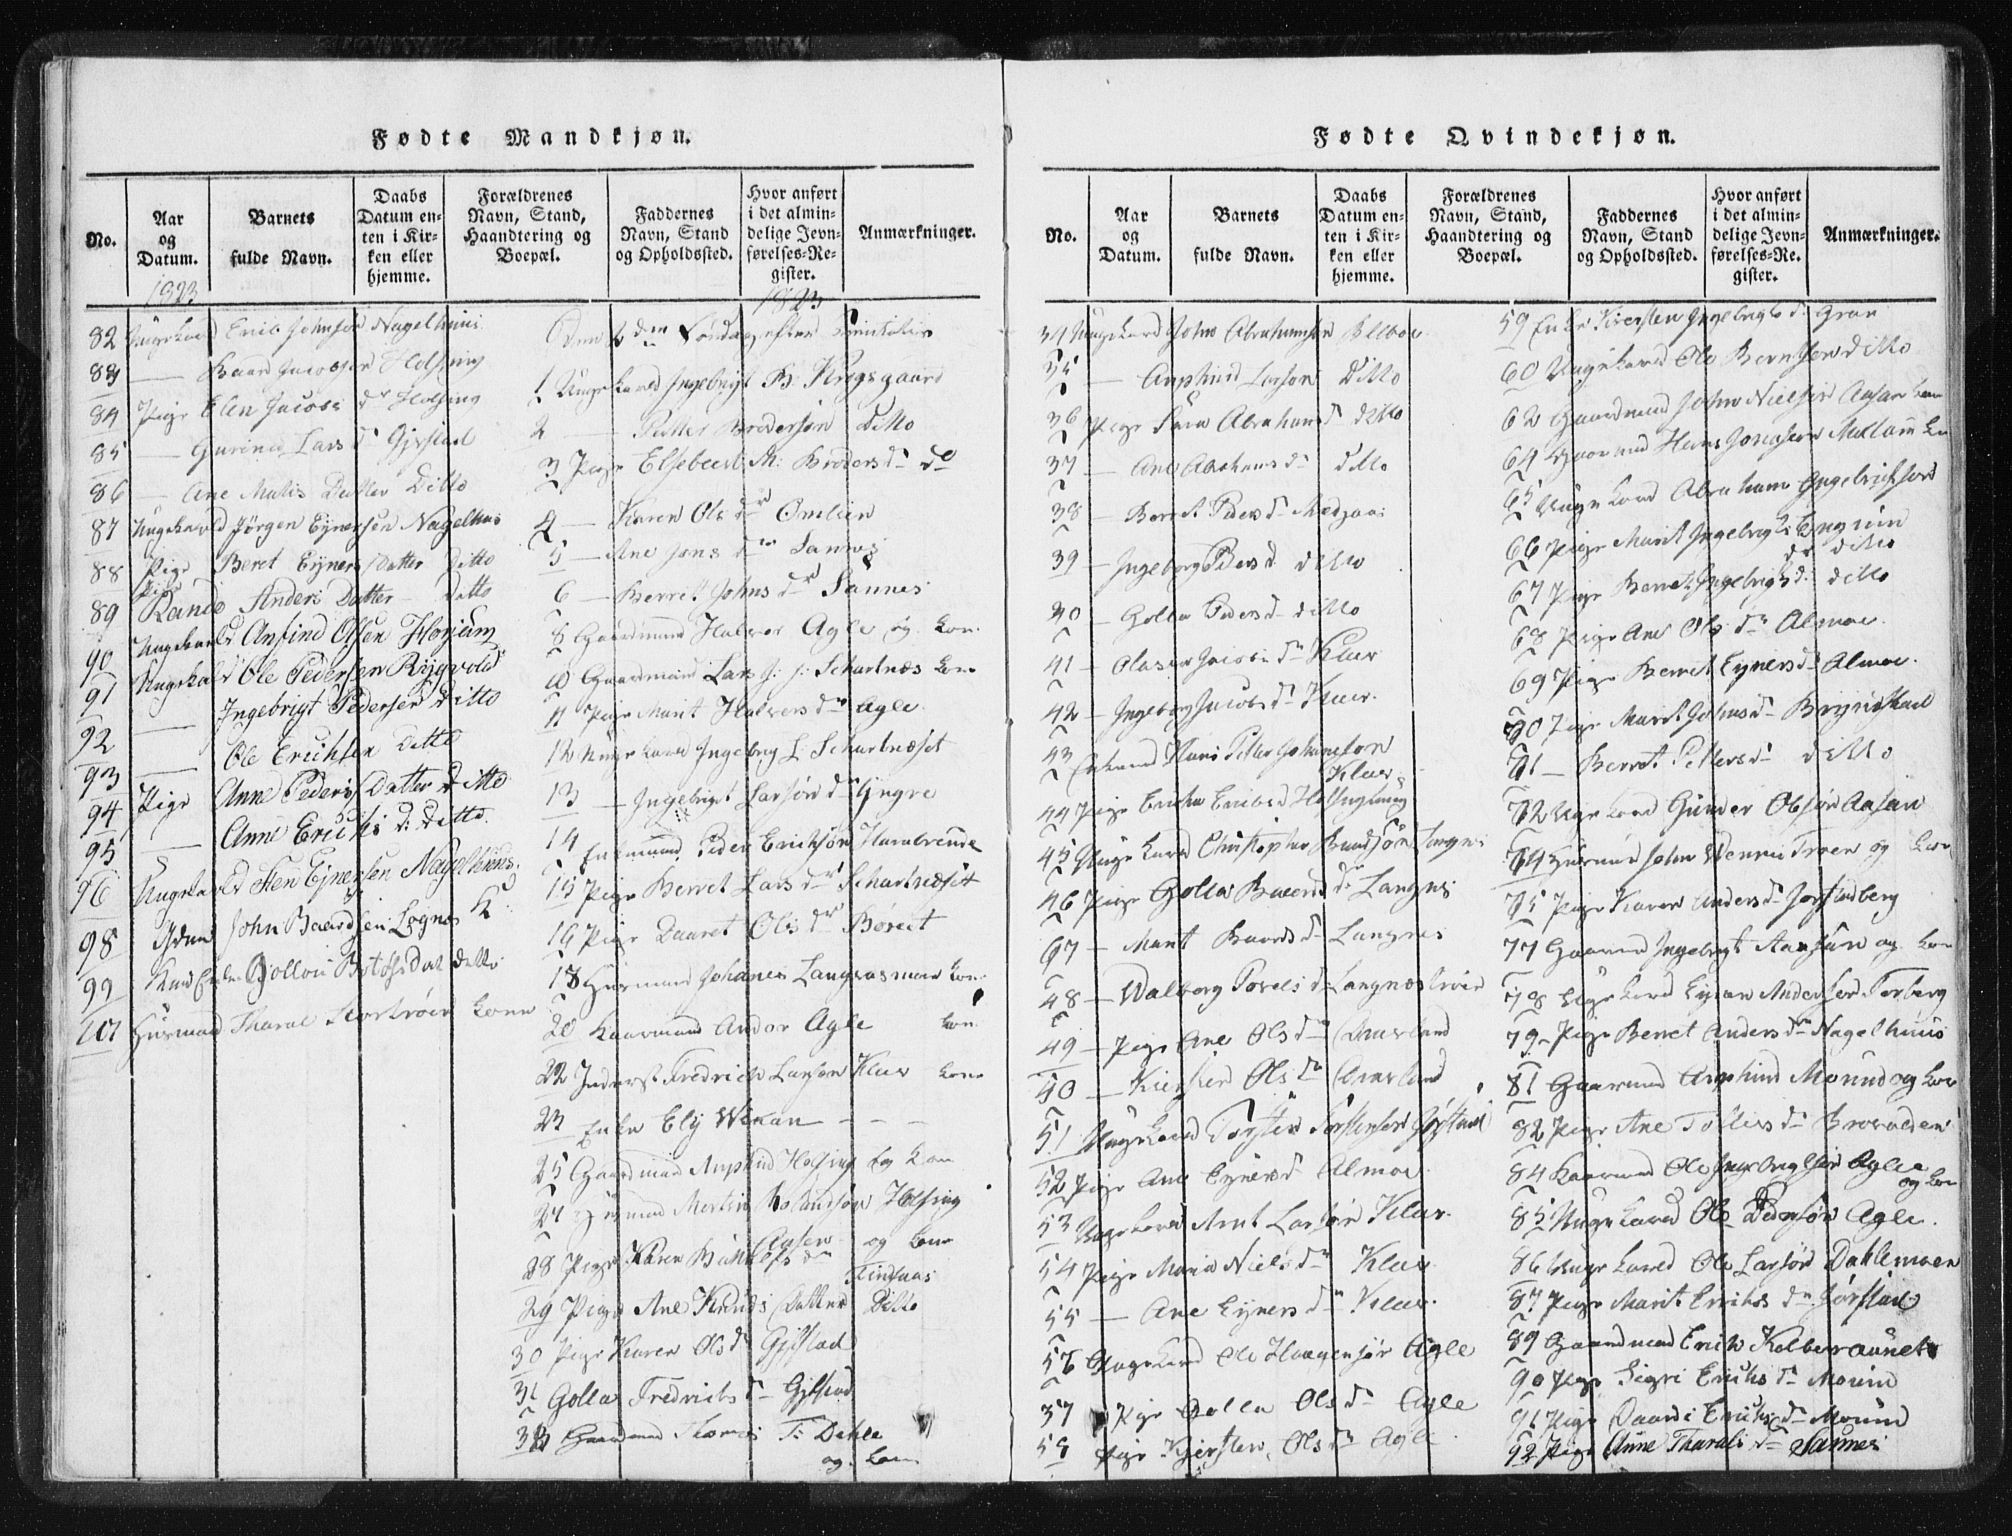 Fødte Mandkjøn.
No.
Aar og Datum.
Barnets fulde Navn.
Daabs Datum enten i Kirken eller hjemme.
Forældrenes Navn, Stand, Haandtering og Boepæl.
Faddernes Navn, Stand og Opholdssted.
Hvor anført i det almindelige Jevnførelses-Register.
Anmærkninger.
1823
82 Ungekarl Erik Johnsen Nagelhuus
83 — Baard Jacobsen Holsing
84 Pige Elen Jacobs dr Holsing
85 — Gurina Lars d. Gjestad
86 — Ane Matis Datter Ditto
87 Ungekarl Jørgen Ejnersen Nagelhus
88 Pige Beret Ejners Datter Ditto
89 Pige Rande Anders Datter — Ditto
90 Ungekarl Anfind Olsen Florium
91 Ungekarl Ole Pedersen Rygvold
92 — Ingebrigt Pedersen Ditto
93 — Ole Erichsen Ditto
94 Pige Anne Peders Datter Ditto
95 — Anne Erichs D. Ditto.
96 Ungekarl Sten Ejnersen Nagelhuus
98 John Baardsen Lognes K
99 Gollou Dat ditto
101 Huusmand Tharal Stortrøen Kone
1823
Den Søndag efter Trinitatis
1 Ungekarl Ingebrigt B. Krogsgaard
2 — Petter Brodersen Ditto
3 Pige Elsebeet M. Broders d. do
4 — Karen Ols dr Omlien
5 — Ane Jons dr Sannes
6 — Berrit Johns dr Sannes
8 Gaardmand Halvor Agle og Kone
10 Gaardmand Lars J. J. Schartnæs Kone
11 Pige Marit Halvors dr Agle
12 Ungekarl Ingebrg L. Schartnæset
13 — Ingebrigt Larsøn
14 Enkemand Peder Eriksøn Harabrende
15 Pige Berret Lars dr Schartnæset
16 Pige Daaret Ols dr Børset
18 Huusmand Johanes Langnæs Kone
20 Gaarmand Andor Agle Kone
22 Inderst Fredrich Larsøn Kluv Kone
23 Enke Ely Weman — — —
25 Gaardmand Arnphind Holsing og Kone
27 Huusmand Morten Rolandsøn Holsing
Aasen og Kone
28 Pige Karen dr Findsaas
29 Pige Ane Knuds Datter Ditto
30 Pige Karen Ols d. Gjestad
31 Golla Fredrichs d. Gjestad
33 Gaardmand Thomas T. Dahle
og Kone
Fødte Qvindekjøn.
No.
Aar og Datum.
Barnets fulde Navn.
Daabs Datum enten i Kirken eller hjemme.
Forældrenes Navn, Stand, Haandtering og Boepæl.
Faddernes Navn, Stand og Opholdssted.
Hvor anført i det almindelige Jevnførelses-Register.
Anmærkninger.
34 Ungekarl John Abrahamsen Belboe
35 — Arnphind Larsøn Ditto
36 Pige Sara Abrahams d. ditto
37 — Ane Abrahams dr ditto
38 — Berret Peders d. Medjaa
39 — Ingeborg Peders d ditto
40 — Golla Peders d. ditto
41 — Olava Jacobs dr Kluv
42 — Ingeborg Jacobs dr Kluv.
43 Enkemand Hans Petter Johanesøn
Kluv
44 Pige Ericha Erichs d Holsing
45 Ungekarl Christopher Baardsøn Langnes
46 Pige Golla Baards d. Langnes
47 — Marit Baards d. Langnes
48 — Walborg Povels d. Langnæstrøen
49 — Pige Ane Ols dr
50 — Kiersten Ols dr
51 Ungekarl Torsten Torstensen Gjestad
52 Pige Ane Ejners dr Almoe
53 Ungekarl Arnt Larsøn Kluv.
54 Pige Maria Niels dr Kluv
55 — Ane Ejners dr Kluv.
56 Ungekarl Ole Haagensøn Agle
57 Pige Golla Ols dr Agle
58 Pige Kjersten Ols dr Agle
59 Enke Kiersten Ingebrigts d. Gran
60 Ungekarl Ole Berntsen ditto
62 Gaardmand John Nielsen Aasan Kone
64 Gaarmand Hans Jonasøn Mellum Ko
65 Ungekarl Abraham Ingebrichsen
66 Pige Marit Ingebrigts dr ditto
67 Pige Berret Ingebrigts d. ditto
68 Pige Ane Ols dr Almoe.
69 Pige Berret Ejners d. Almoe.
70 Pige Marit Johns dr
71 — Berret Petters dr ditto
72 Ungekarl Gunder Olsøn Aasan
74 Huusmand John Troen og Kone
75 Pige Karen Anders dr Jorstadberg
77 Gaarmand Ingebrigt Aassum og Kone
78 Ungekarl Ejnar Andersen Forberg
79 Pige Berret Anders dr Nagelhuus
81 Gaarmand Arnphind Moum og Kone
82 Pige Ane Tolleivs dr Brovolden
84 Gaarmand Ole Ingebrigtsøn Agle
og Kone
85 Ungekarl Ole Pedersøn Agle.
86 Ungekarl Ole Larsøn Dahlemoen
87 Pige Marit Erichs dr Jørstad
89 Gaardmand Erich Kolberaunet
90 Pige Sigri Erichs dr Moum
91 Pige Daardi Erichs dr Moum
92 Pige Anne Tharals dr Sannes